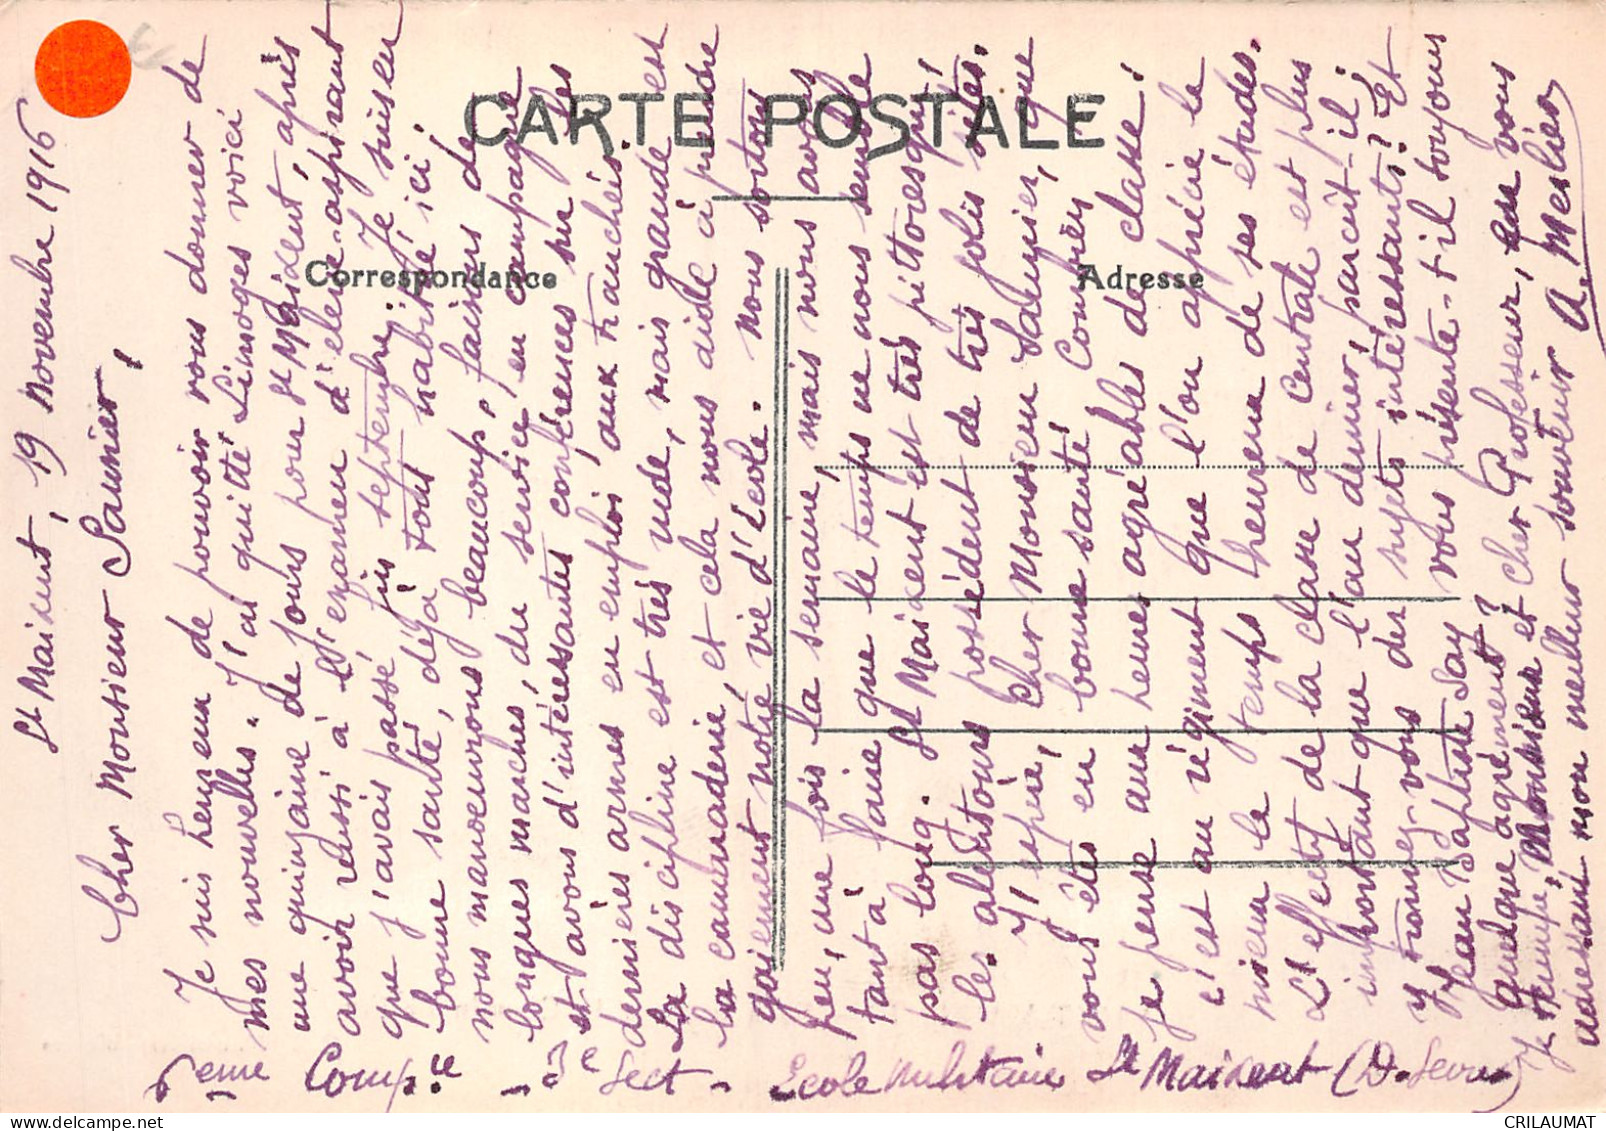 CARTE POSTALE
Correspondance
Adresse
St Maixent, 19 Novembre 1916
Cher Monsieur Saunier,
Je suis heureux de pouvoir vous donner de
mes nouvelles. J'ai quitté Limoges voici
une quinzaine de jours pour St Maixent, après
avoir réussi à l'examen d'élève-aspirant
que j'avais passé fin septembre. Je suis en
bonne santé, déjà tout habitué ici.
nous manoeuvrons beaucoup, faisons de
longues marches, du service en campagne
et avons d'intéressantes conférences sur les
dernières armes en emploi aux tranchées.
La discipline est très rude, mais grande est
la camaraderie, et cela nous aide à prendre
gaiement notre vie d'Ecole. Nous sortons
peu, une fois la semaine, mais nous avons
tant à faire que le temps ne nous semble
pas long. St Maixent est très pittoresque,
les alentours possèdent de très jolis sites.
J'espère, Cher Monsieur Saunier, que
vous êtes en bonne santé
Je pense aux heures agréables de classe!
c'est au régiment que l'on apprécie le
mieux le temps heureux de ses études.
L'effectif de la classe de Centrale est plus
important que l'an dernier, paraît-il.
y trouvez-vous des sujets intéressants? Et
Jean Baptiste Say vous présente-t-il toujours
quelque agrément?
Je termine, Monsieur et Cher Professeur, en vous
adressant mon meilleur souvenir A. Meslier
5eme Comp.ie - 3e Sect - Ecole militaire St Maixent (D. Sèvres)
CRILAUMAT